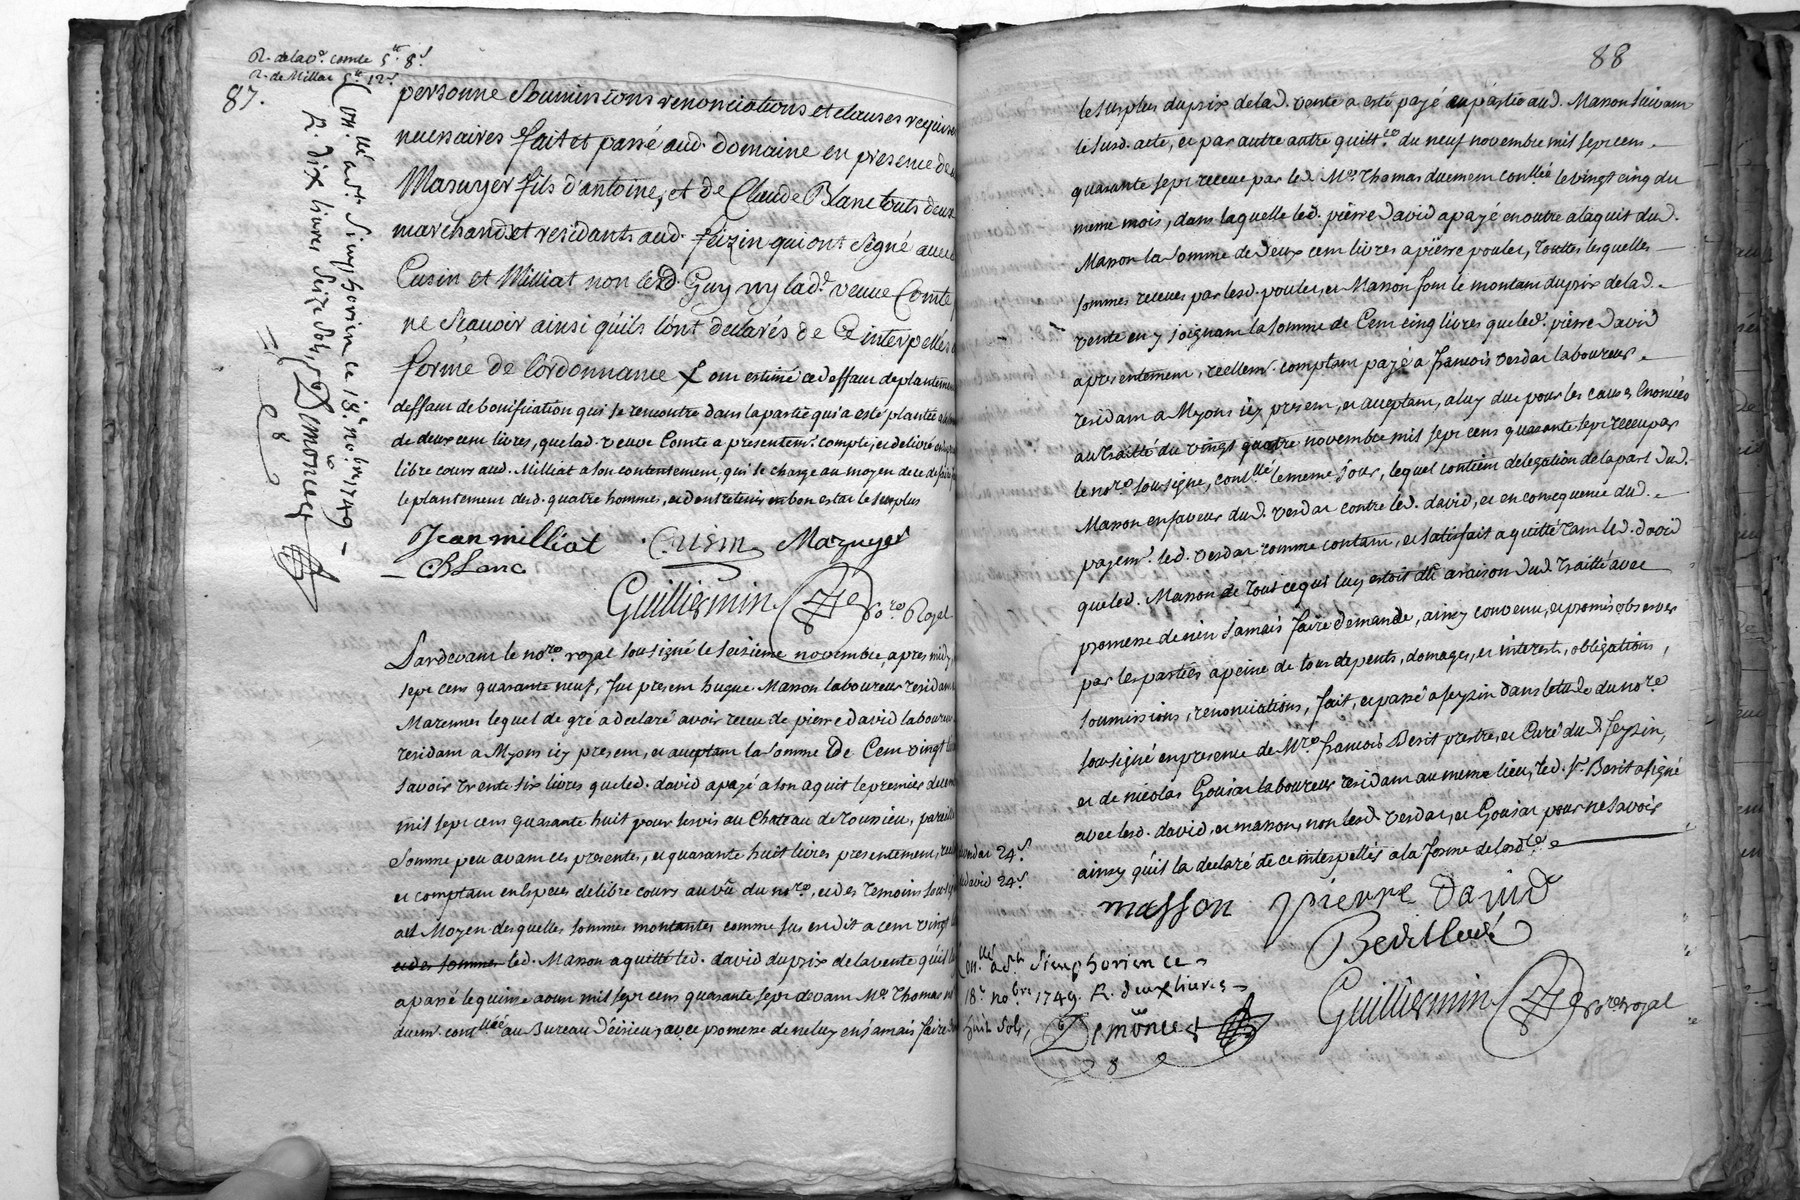 R. de la v.e comte 5.tt 8.s
R. de Millac 5.tt 12.s
87.
Con.llé a d.t Simphorien ce 18.e no.bre 1749
R. dix livres seize sols, Demoncey
8
personne soumissions renonciations et clauses requises
necessaires fait et passé aud. domaine en presence de
Mazuyer fils d'antoine, et de Claude Blanc touts deux
marchands et residants aud. feizin qui ont signé avec
Cusin et Milliat non led. Guy ny lad.e veuve Comte
ne scavoir ainsi qu'ils l'ont declarés de ce interpellés
forme de l'ordonnance X ont estimé ce deffaut de plantement
deffaut de bonification qui se rencontre dans la partie qui a esté plantée
de deux cent livres, que lad. veuve Comte a presentem.t compté, et delivré
libre cours aud. Milliat a son contentement, qui se charge au moyen de ce de faire
le plantement dud. quatre hommes, et d'entretenir en bon estat le surplus
Jean milliat Cusin Mazuyer
Blanc
Guilliermin No.re Royal
Pardevant le no.re royal sousigné le seizieme novembre, apres midy,
sept cens quarante neuf, fut present hugue Masson laboureur residant
Marennes lequel de gré a declaré avoir receu de pierre david laboureur
residant a Myons icy present, et acceptant la somme De Cent vingt
savoir trente six livres que led. david a payé a son aquit le premier
mil sept cens quarante huit pour servis au Chateau de rousieu, pareille
somme peu avant ces presentes, et quarante huit livres presentement,
et comptant en especes de libre cours au vû du no.re, et des temoins
au Moyen desquelles sommes montantes comme sus en dit a cent vingt
et des sommes led. Masson a quitté led. david du prix de la vente qu'il
a passé le quinze aoust mil sept cens quarante sept devant M.e Thomas
duem.t con.llée au Bureau d'eirieu, avec promesse de ne luy en jamais faire
88
le surplus du prix de lad. vente a esté payé en partie aud. Masson suivant
le susd. acte, et par autre autre quitt.ce du neuf novembre mil sept cens
quarante sept receue par led. M.e Thomas duement con.llée le vingt cinq du
meme mois, dans laquelle led. pierre david a payé en outre a l'aquit dud.
Masson la somme de deux cent livres a pierre poulet, toutes lesquelles
sommes receues par lesd. poulet, et Masson font le montant du prix de lad.
vente en y joignant la somme de Cent cinq livres que led. pierre david
a presentement, reellem.t comptant payé a francois verdat laboureur
residant a Myons icy present, et acceptant, a luy due pour les causes enoncées
au traitté du vingt quatre novembre mil sept cens quarante sept receu par
le no.re sousigné, con.llé le meme jour, lequel contient delegation de la part dud.
Masson en faveur dud. verdat contre led. david, et en consequence dud.
payem.t led. verdat comme contant, et satisfait a quitté tant led. david
que led. Masson de tout ce qui luy estoit dû a raison dud. traitté avec
promesse de n'en jamais faire demande, ainsy convenu, et promis observer
par les parties a peine de tous depents, domages, et interests, obligations,
soumissions, renonciations, fait, et passé a feyzin dans letude du no.re
sousigné en presence de M.re francois Berit prestre, et Curé du d. feyzin,
et de nicolas Goujat laboureur residant au meme lieu, led. s.r Berit a signé
avec lesd. david, et masson, non lesd. verdat, et Goujat pour ne savoir
ainsy qu'il la declaré de ce interpellés a la forme de lord.ce
verdat 24.s
david 24.s
masson pierre david
Berit Curé
Con.llé a d.t Simphorien ce
18.e no.bre 1749. R. deux livres
huit sols, Demoncey
8
Guilliermin No.re royal